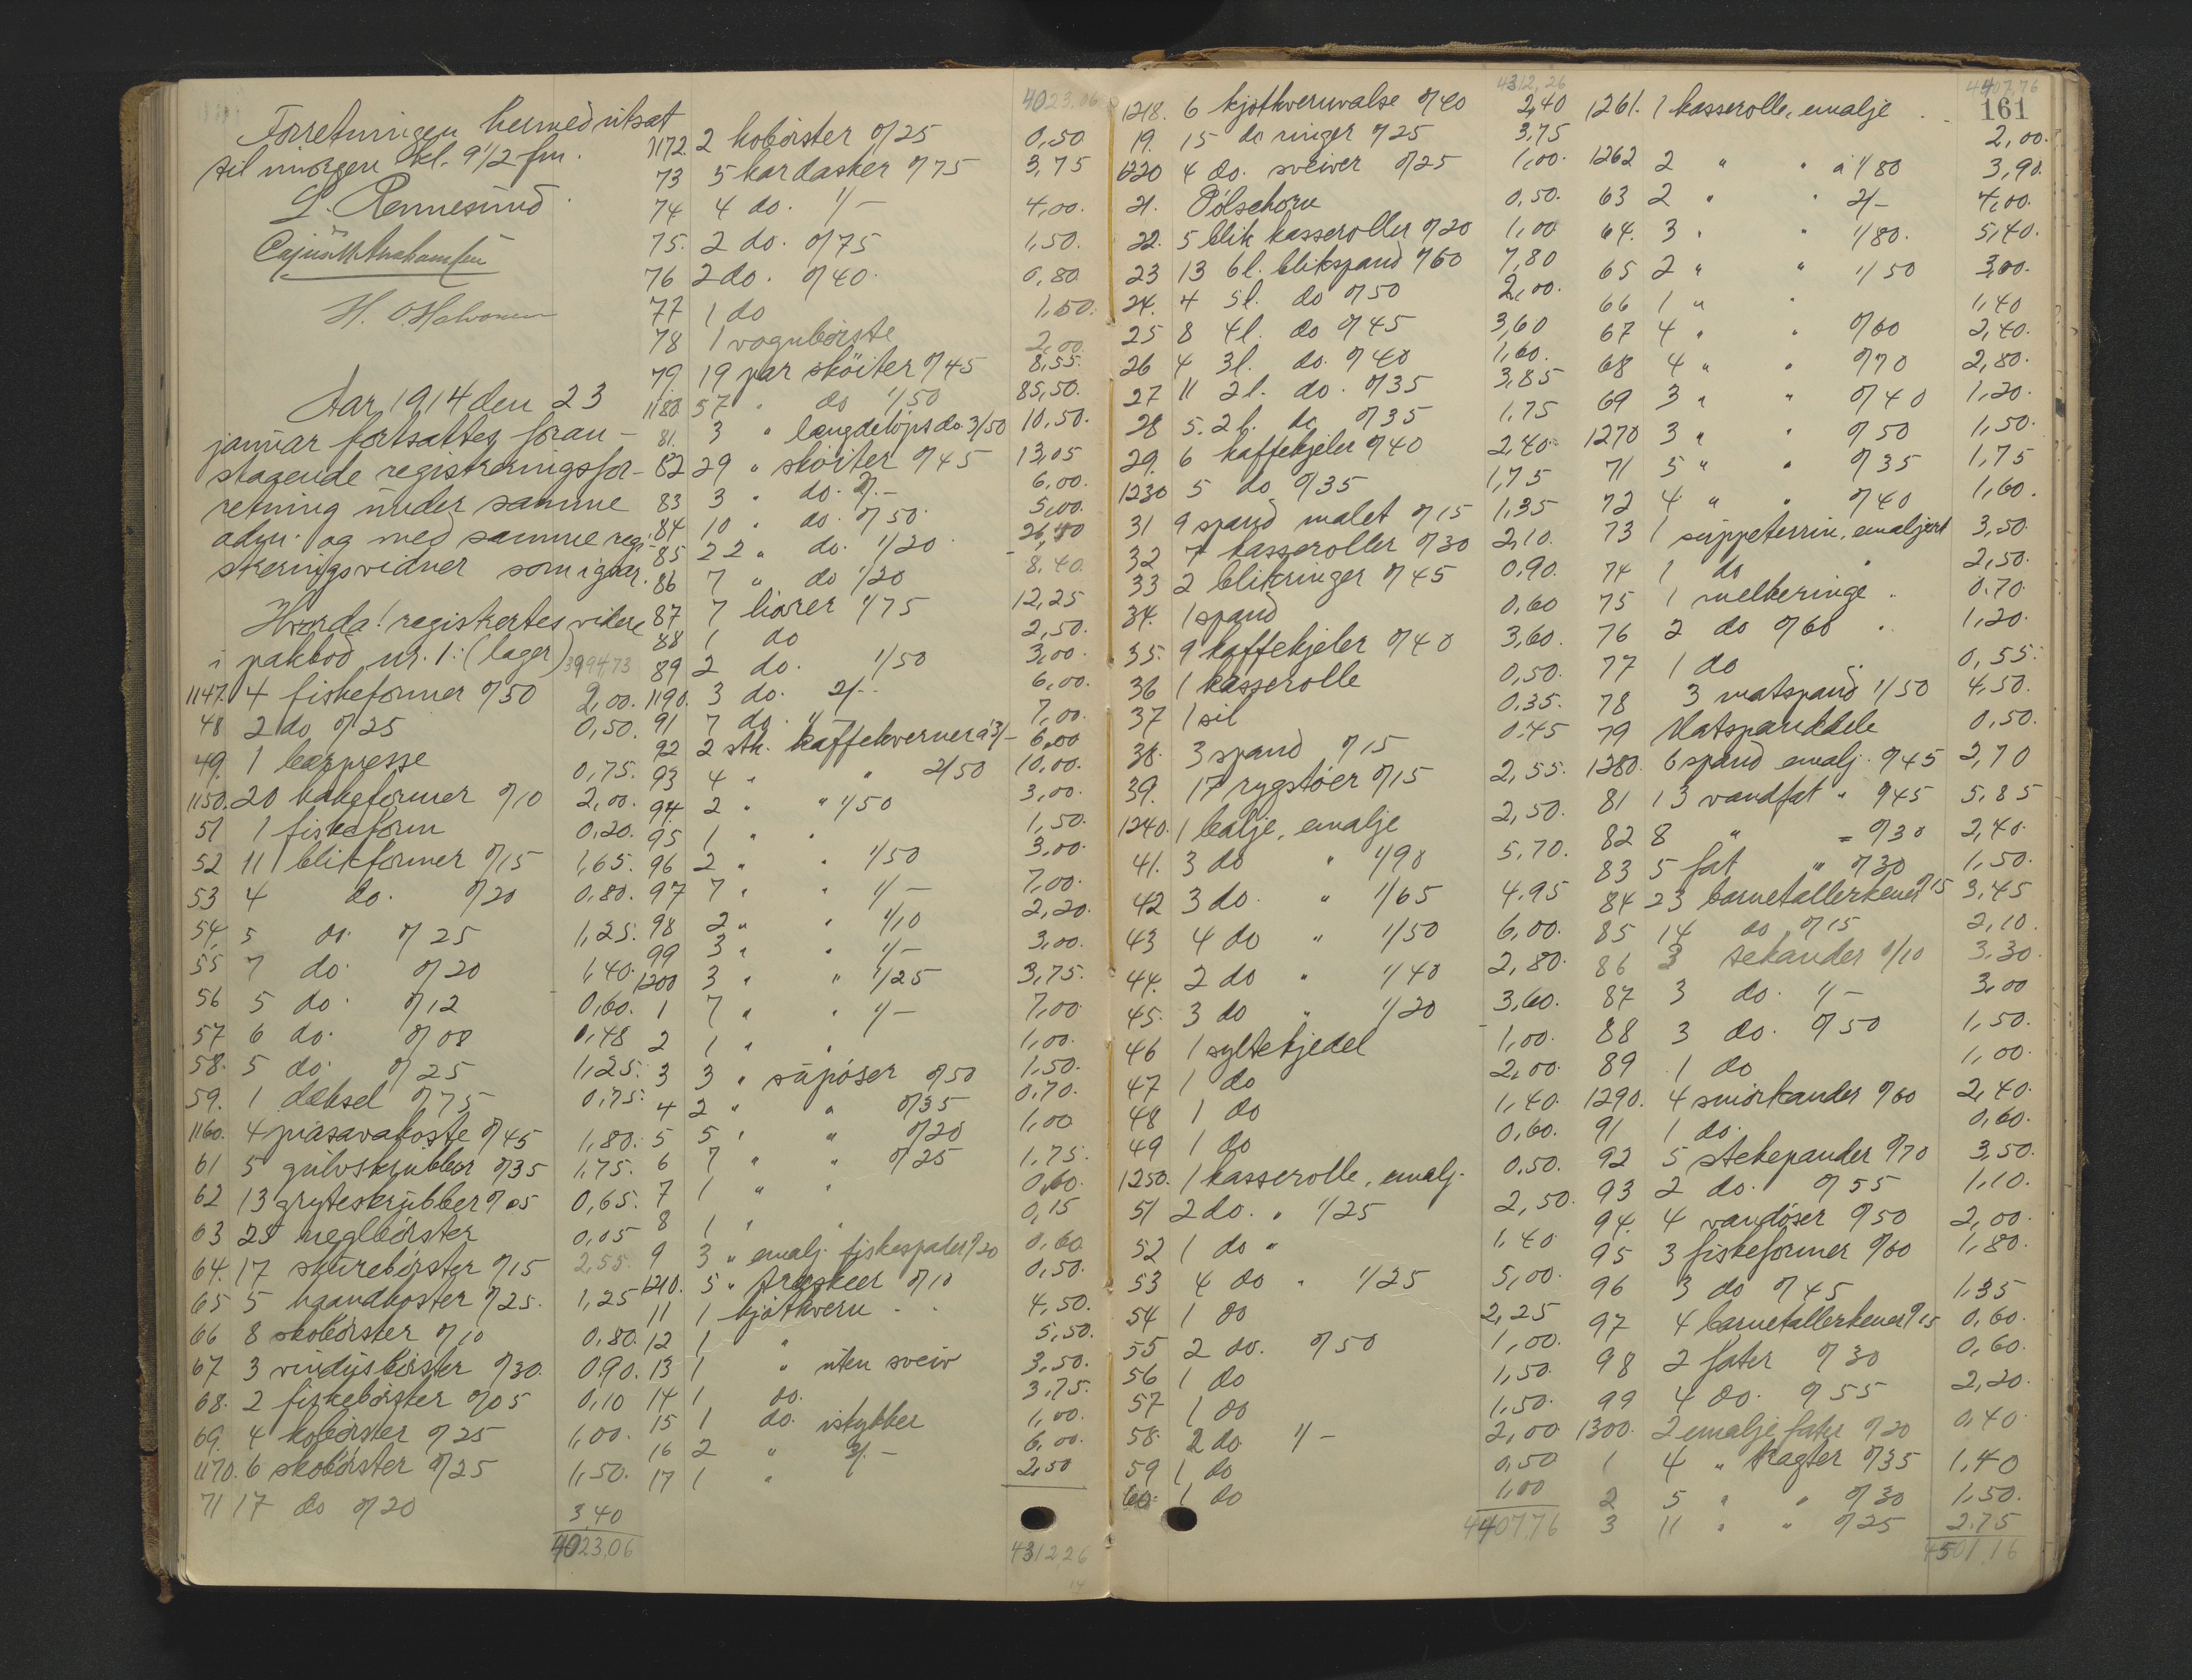 Forretningen hermed utsat
til imorgen kl. 9 1/2 fm.
L. Rennesund
Cajus M Abrahamsen
H. O. Halvorsen
Aar 1914 den 23
januar fortsattes foran-
staaende registreringsfor-
retning under samme
adm. og med samme regi-
streringsvidner som igaar.
Hvorda! registertes videre
i pakbod nr. 1: (lager) 3994,73
1147. 4 fiskeformer 0/50 2,00.
48 2 do 0/25 0,50.
49. 1 bærpresse 0,75.
1150. 20 kakeformer 0/10 2,00.
51 1 fiskeform 0,20.
52 11 blikformer 0/15 1,65.
53 4 do. 0/20 0,80.
54, 5 do. 0/25 1,25.
55 7 do. 0/20 1,40.
56 5 do. 0/12 0,60.
57 6 do. 0/08 0,48
58. 5 do. 0/25 1,25.
59. 1 dæksel 0/75 0,75.
1160. 4 piasavakoste 0/45 1,80.
61 5 gulvskrubber 0/35 1,75.
62 13 gryteskrubber 0/05 0,65.
63 28 neglbørster 0,05
64. 17 skurebørster 0/15 2,55.
65 5 haandkoster 0/25. 1,25
66 8 skobørster 0/10 0,80.
67 3 vindusbørster 0/30. 0,90.
68. 2 fiskebørster 0/05 0,10
69. 4 kobørster 0/25 1,00.
1170. 6 skobørster 0/25 1,50.
71 17 do 0/20 3,40
4023,06
4023,06
1172. 2 kobørster 0/25 0,50
73 5 kardasker 0/75 3,75
74 4 do. 1/- 4,00.
75. 2 do. 0/75 1,50.
76 2 do. 0/40. 0,80.
77 1 do 1,50.
78 1 vognbørste 2,00.
79. 19 par skøiter 0/45 8,55.
1180. 57 " do 1/50 85,50.
81. 3 " længdeløps do. 3/50 10,50.
82 29 " skøiter 0/45 13,05
83 3 " do. 2/- 6,00.
84 10 " do. 0/50. 5,00.
85 22 " do. 1/20. 26,40
86 7 " do 1/20 8,40.
87 7 liorer 1/75 12,25
88 1 do 2,50.
89 2 do. 1/50 3,00.
1190. 3 do. 2/- 6,00.
91 7 do. 1/- 7,00.
92 2 stk. kaffekverner á 3/- 6,00
93 4 " " 2/50 10,00.
94. 2 " " 1/50 3,00.
95 1 " " 1,50.
96 2 " " 1/50 3,00.
97 7 " " 1/- 7,00.
98 2 " " 1/10 2,20.
99 3 " " 1/- 3,00.
1200 3 " " 1/25 3,75.
1 7 " " 1/- 7,00
2 1 " " 1,00.
3 3 " supøser 0/50 1,50.
4 2 " " 0/35 0,70.
5 5 " " 0/20 1,00
6 7 " " 0/25 1,75.
7 1 " " 0,60.
8 1 " " 0,15
9 3 " emalj. fiskespader 0/20 0,60
1210. 5 " træskeer 0/10 0,50.
11 1 kjøtkvern 4,50.
12 1 " 5,50.
13 1 " uten sveiv 3,50.
14 1 do. 3,75.
15 1 do. istykker 1,00.
16 2 " 3/- 6,00.
17 1 " 2,50
4312 26
4312,26
1218. 6 kjøtkvernvalse 0/40 2,40
19. 15 do ringer 0/25 3,75
1220 4 do. sveiver 0/25 1,00.
21. Pølsehorn 0,50.
22. 5 blik kasseroller 0/20 1,00
23 13 6 l. blikspand 0/60 7,80
24. 4 5 l. do 0/50 2,00.
25 8 4 l. do 0/45 3,60
26 4 3 l. do. 0/40 1,60.
27 11 2 l. do. 0/35 3,85
28 5. 2 l. do 0/35 1,75
29. 6 kaffekjeler 0/40 2,40.
1230 5 do 0/35 1,75
31 9 spand malet 0/15 1,35
32 7 kasseroller 0/30 2,10.
33 2 blikringer 0/45 0,90.
34. 1 spand 0,60
35. 9 kaffekjeler 0/40 3,60.
36 1 kasserolle 0,50.
37 1 sil 0,35.
38. 3 spand 0/15 0,45
39. 17 rygstøer 0/15 2,55.
1240. 1 balje, emalje 2,50.
41. 3 do " 1/90 5,70.
42 3 do. " 1/65 4,95
43 4 do " 1/50 6,00.
44. 2 do " 1/40 2,80.
45. 3 do " 1/20 3,60.
46 1 syltekjedel 1,00.
47 1 do 2,00.
48 1 do 1,40.
49 1 do 0,60.
1250. 1 kasserolle, emalj. 0,50.
51 2 do. " 1/25 2,50.
52 1 do " 1,40
53 4 do " 1/25 5,00.
54 1 do 2,25
55 2 do. 0/50 1,00.
56 1 do 1,50.
57 1 do 1,50.
58. 2 do. 1/- 2,00
59 1 do 0,50
60. 1 do 1,00
4407,76
4407,76
161
1261. 1 kasserolle, emalje 2,00.
1262 2 " " á 1/80 3,90.
63 2 " " 2/- 4,00.
64. 3 " " 1/80. 5,40.
65 2 " " 1/50 3,00.
66 1 " " 1,40
67 4 " " 0/60 2,40.
68 4 " " 0/70 2,80.
69 3 " " 0/40 1,20.
1270 3 " " 0/50 1,50.
71 5 " " 0/35 1,75
72 4 " " 0/40 1,60.
73 1 suppeterrin, emaljert 3,50.
74 1 do " 2,50.
75 1 melkeringe " 0,70.
76 2 do 0/60 " 1,20.
77 1 do " 0,55.
78 3 matspand 1/50 4,50.
79 Matspanddele 0,50.
1280. 6 spand emalj. 0/45 2,70
81 13 vandfat " 0/45 5,85
82 8 " " 0/30 2,40.
83 5 fat " 0/30 1,50.
84 23 barnetallerkener 0/15 3,45
85 14 do 0/15 2,10.
86 3 tekander 1/10 3,30.
87 3 do. 1/- 3,00
88 3 do. 0/50 1,50.
89 1 do 1,00.
1290. 4 smørkander 0/60 2,40.
91 1 do. 0,60.
92 5 stekepander 0/70 3,50.
93 2 do. 0/55 1,10.
94. 4 vandøser 0/50 2,00.
95 3 fiskeformer 0/60 1,80.
96 3 do 0/45 1,35
97 4 barnetallerkener 0/15 0,60.
98 2 fater 0/30 0,60.
99 4 do. 0/55 2,20.
1300. 2 emalje fater 0/20 0,40.
1 4 " tragter 0/35 1,40
2 5 " " 0/30 1,50.
3 11 " " 0/25 2,75
4501,16